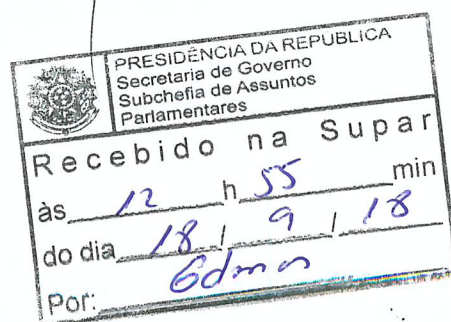 PRESIDÊNCIA DA REPUBLICA
Secretaria de Governo
Subchefia de Assuntos
Parlamentares
Recebido na Supar
às 12 h 55 min
do dia 18 / 9 / 18
Por: